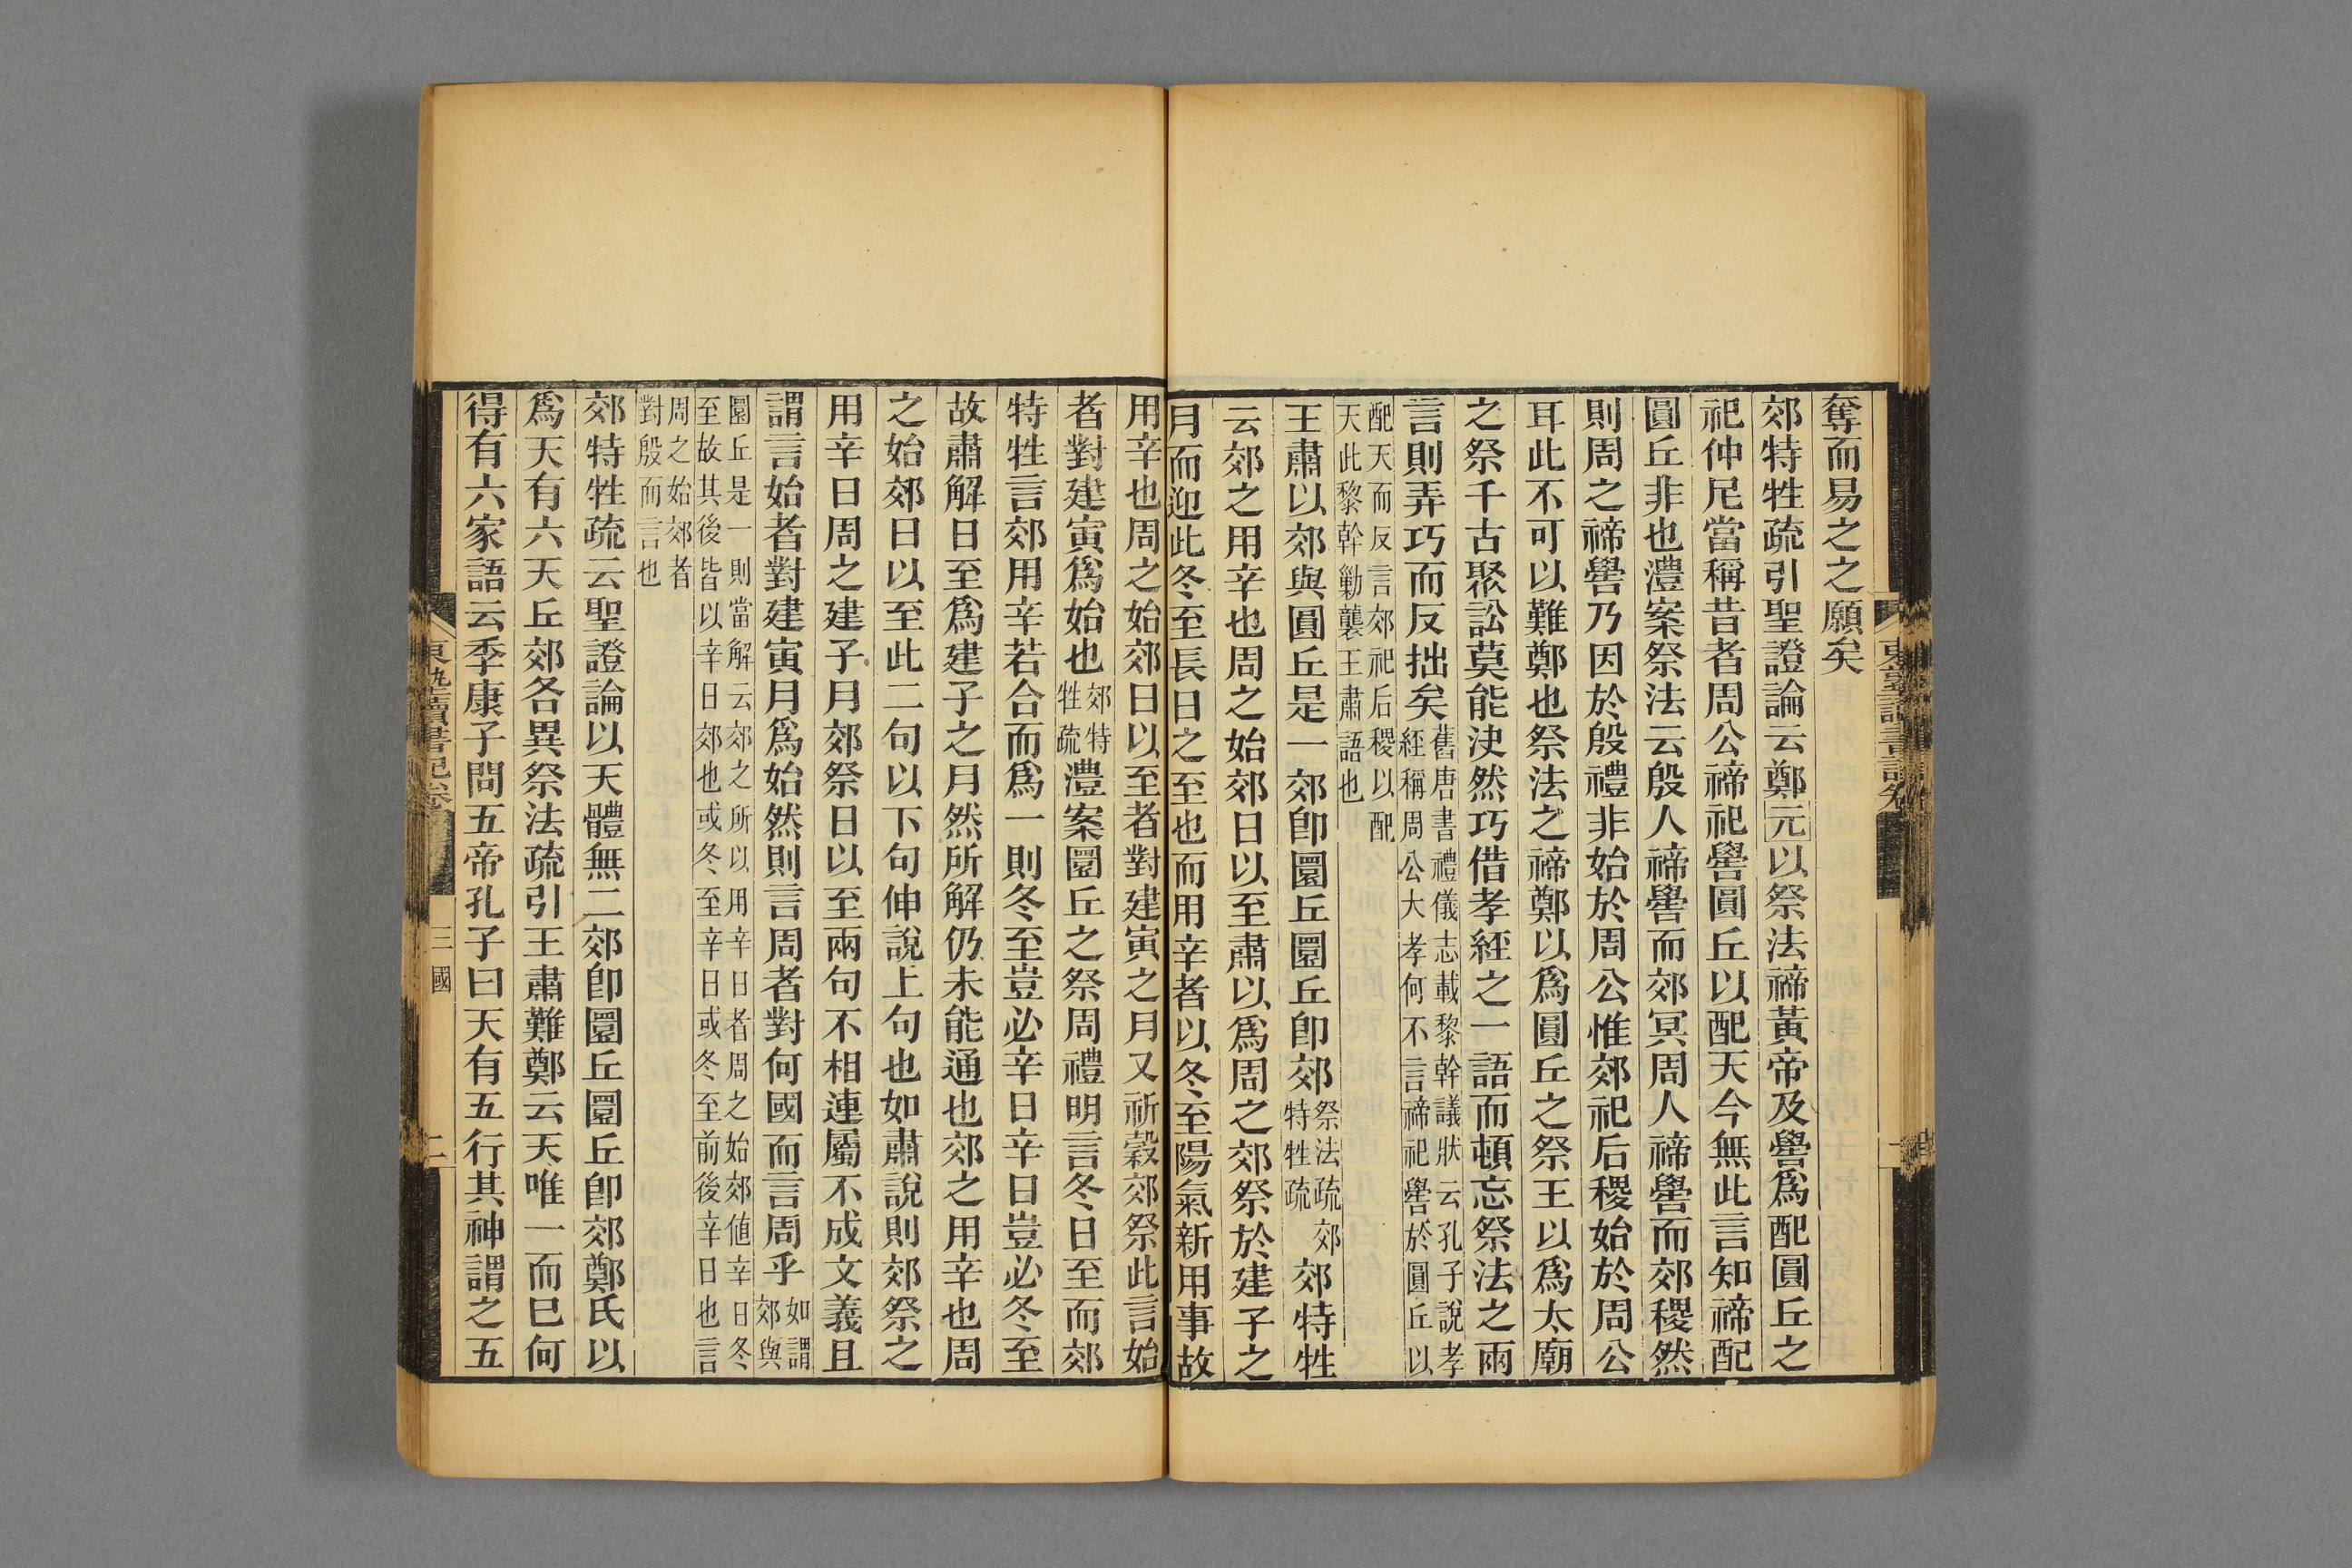 奪而易之之願矣
郊特牲疏引聖證論云鄭元以祭法禘黃帝及嚳爲配圓丘之
祀仲尼當稱昔者周公禘祀嚳圓丘以配天今無此言知禘配
圓丘非也澧案祭法云殷人禘嚳而郊冥周人禘嚳而郊稷然
則周之禘嚳乃因於殷禮非始於周公惟郊祀后稷始於周公
耳此不可以難鄭也祭法之禘鄭以爲圓丘之祭王以爲太廟
之祭千古聚訟莫能決然巧借孝經之一語而頓忘祭法之兩
言則弄巧而反拙矣舊唐書禮儀志載黎幹議狀云孔子說孝
經稱周公大孝何不言禘祀嚳於圓丘以
配天而反言郊祀后稷以配
天此黎幹勦襲王肅語也
王肅以郊與圓丘是一郊卽圜丘圜丘卽郊祭法疏郊特牲疏郊特牲
云郊之用辛也周之始郊日以至肅以爲周之郊祭於建子之
月而迎此冬至長日之至也而用辛者以冬至陽氣新用事故
用辛也周之始郊日以至者對建寅之月又祈穀郊祭此言始
者對建寅爲始也郊特牲疏澧案圜丘之祭周禮明言冬日至而郊
特牲言郊用辛若合而爲一則冬至豈必辛日辛日豈必冬至
故肅解日至爲建子之月然所解仍未能通也郊之用辛也周
之始郊日以至此二句以下句伸說上句也如肅說則郊祭之
用辛日周之建子月郊祭日以至兩句不相連屬不成文義且
謂言始者對建寅月爲始然則言周者對何國而言周乎如謂郊與
圜丘是一則當解云郊之所以用辛日者周之始郊値辛日冬
至故其後皆以辛日郊也或冬至辛日或冬至前後辛日也言
周之始郊者
對殷而言也
郊特牲疏云聖證論以天體無二郊卽圜丘圜丘卽郊鄭氏以
爲天有六天丘郊各異祭法疏引王肅難鄭云天唯一而已何
得有六家語云季康子問五帝孔子曰天有五行其神謂之五
東塾讀書記卷
三國
二